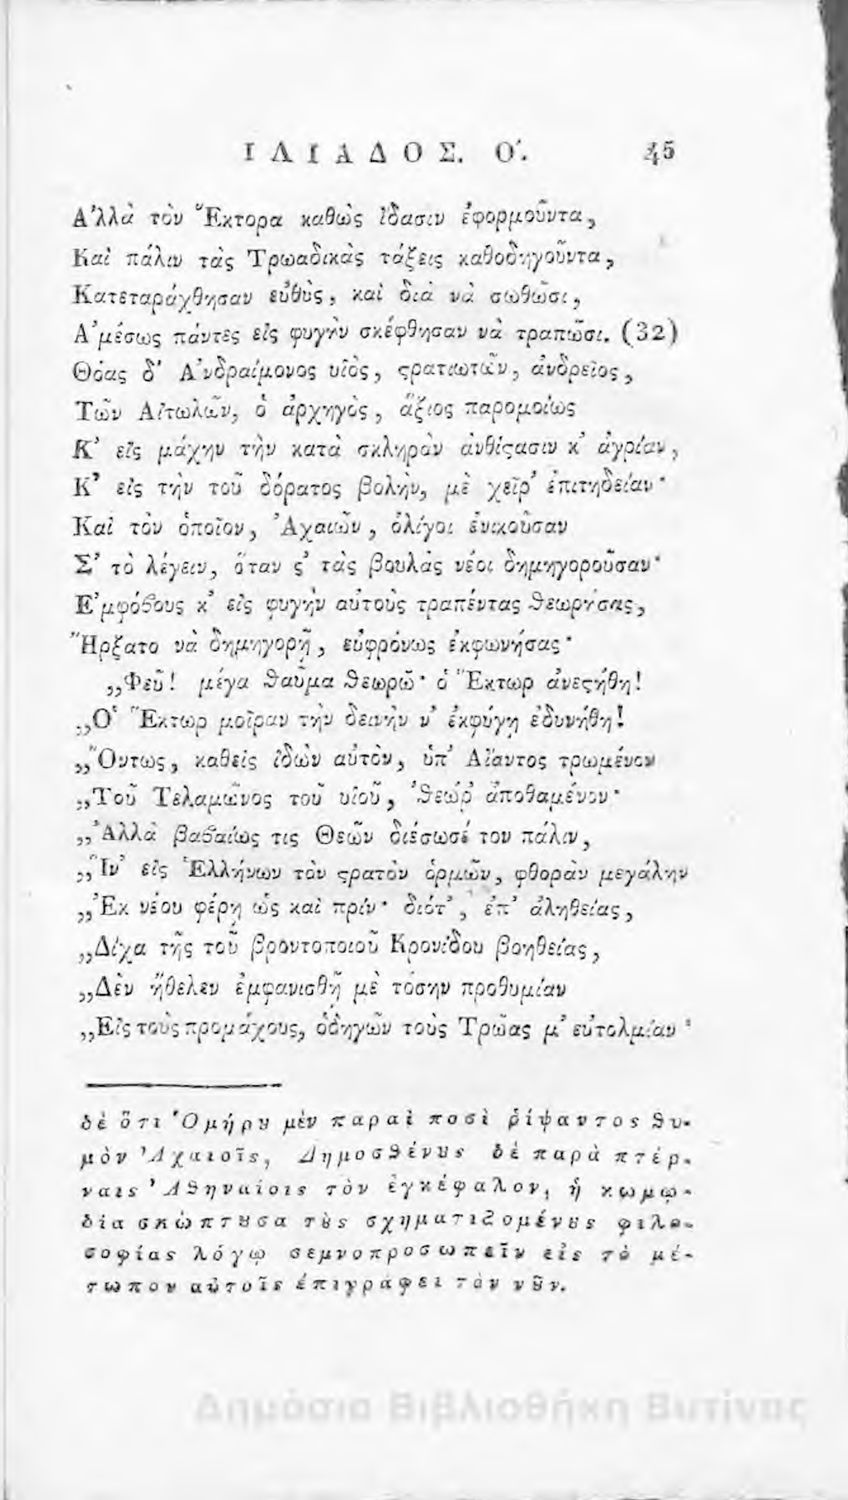 ΙΛΙΑΔΟΣ. Ο'. 45
Ἀλλὰ τὸν Ἕκτορα καθὼς ἴδασιν ἐφορμοῦντα,
Καὶ πάλιν τὰς Τρωαδικὰς τάξεις καθοδηγοῦντα,
Κατεταράχθησαν εὐθὺς, καὶ διὰ νὰ σωθῶσι,
Ἀμέσως πάντες εἰς φυγὴν σκέφθησαν νὰ τραπῶσι. (32)
Θόας δ' Ἀνδραίμονος υἱὸς, ϛρατιωτῶν, ἀνδρεῖος,
Τῶν Αἰτωλῶν, ὁ ἀρχηγὸς, ἄξιος παρομοίως
Κ' εἰς μάχην τὴν κατὰ σκληρὰν ἀνθίϛασιν κ' ἀγρίαν,
Κ' εἰς τὴν τοῦ δόρατος βολὴν, μὲ χεῖρ' ἐπιτηδείαν·
Καὶ τὸν ὁποῖον, Ἀχαιῶν, ὀλίγοι ἐνικοῦσαν
Σ' τὸ λέγειν, ὅταν ϛ' τὰς βουλὰς νέοι δημηγοροῦσαν·
Ἐμφόβους κ' εἰς φυγὴν αὐτοὺς τραπέντας θεωρήσας,
Ἤρξατο νὰ δημηγορῇ, εὐφρόνως ἐκφωνήσας·
„Φεῦ! μέγα θαῦμα θεωρῶ· ὁ Ἕκτωρ ἀνεϛήθη!
„Ὁ Ἕκτωρ μοῖραν τὴν δεινὴν ν' ἐκφύγῃ ἐδυνήθη!
„Ὄντως, καθεὶς ἰδὼν αὐτὸν, ὑπ' Αἴαντος τρωμένον
„Τοῦ Τελαμῶνος τοῦ υἱοῦ, θεώρ' ἀποθαμένον·
„Ἀλλὰ βαβαίως τις Θεῶν διέσωσέ τον πάλιν,
„Ἵν' εἰς Ἑλλήνων τὸν ϛρατὸν ὁρμῶν, φθορὰν μεγάλην
„Ἐκ νέου φέρῃ ὡς καὶ πρίν· διότ', ἐπ' ἀληθείας,
„Δίχα τῆς τοῦ βροντοποιοῦ Κρονίδου βοηθείας,
„Δὲν ἤθελεν ἐμφανισθῆ μὲ τόσην προθυμίαν
„Εἰς τοὺς προμάχους, ὁδηγῶν τοὺς Τρῶας μ' εὐτολμίαν·
δὲ ὅτι Ὁμήρȣ μὲν παραὶ ποσὶ ῥίψαντος θυ-
μὸν Ἀχαιοῖς, Δημοσθένȣς δὲ παρὰ πτέρ-
ναις Ἀθηναίοις τὸν ἐγκέφαλον, ἡ κωμῳ-
δία σκώπτȣσα τȣ̀ς σχηματιζομένȣς φιλο-
σοφίας λόγῳ σεμνοπροσωπεῖν εἰς τὸ μέ-
τωπον αὐτοῖς ἐπιγράφει τὸν νȣ̃ν.
Δημόσια Βιβλιοθήκη Βυτίνας